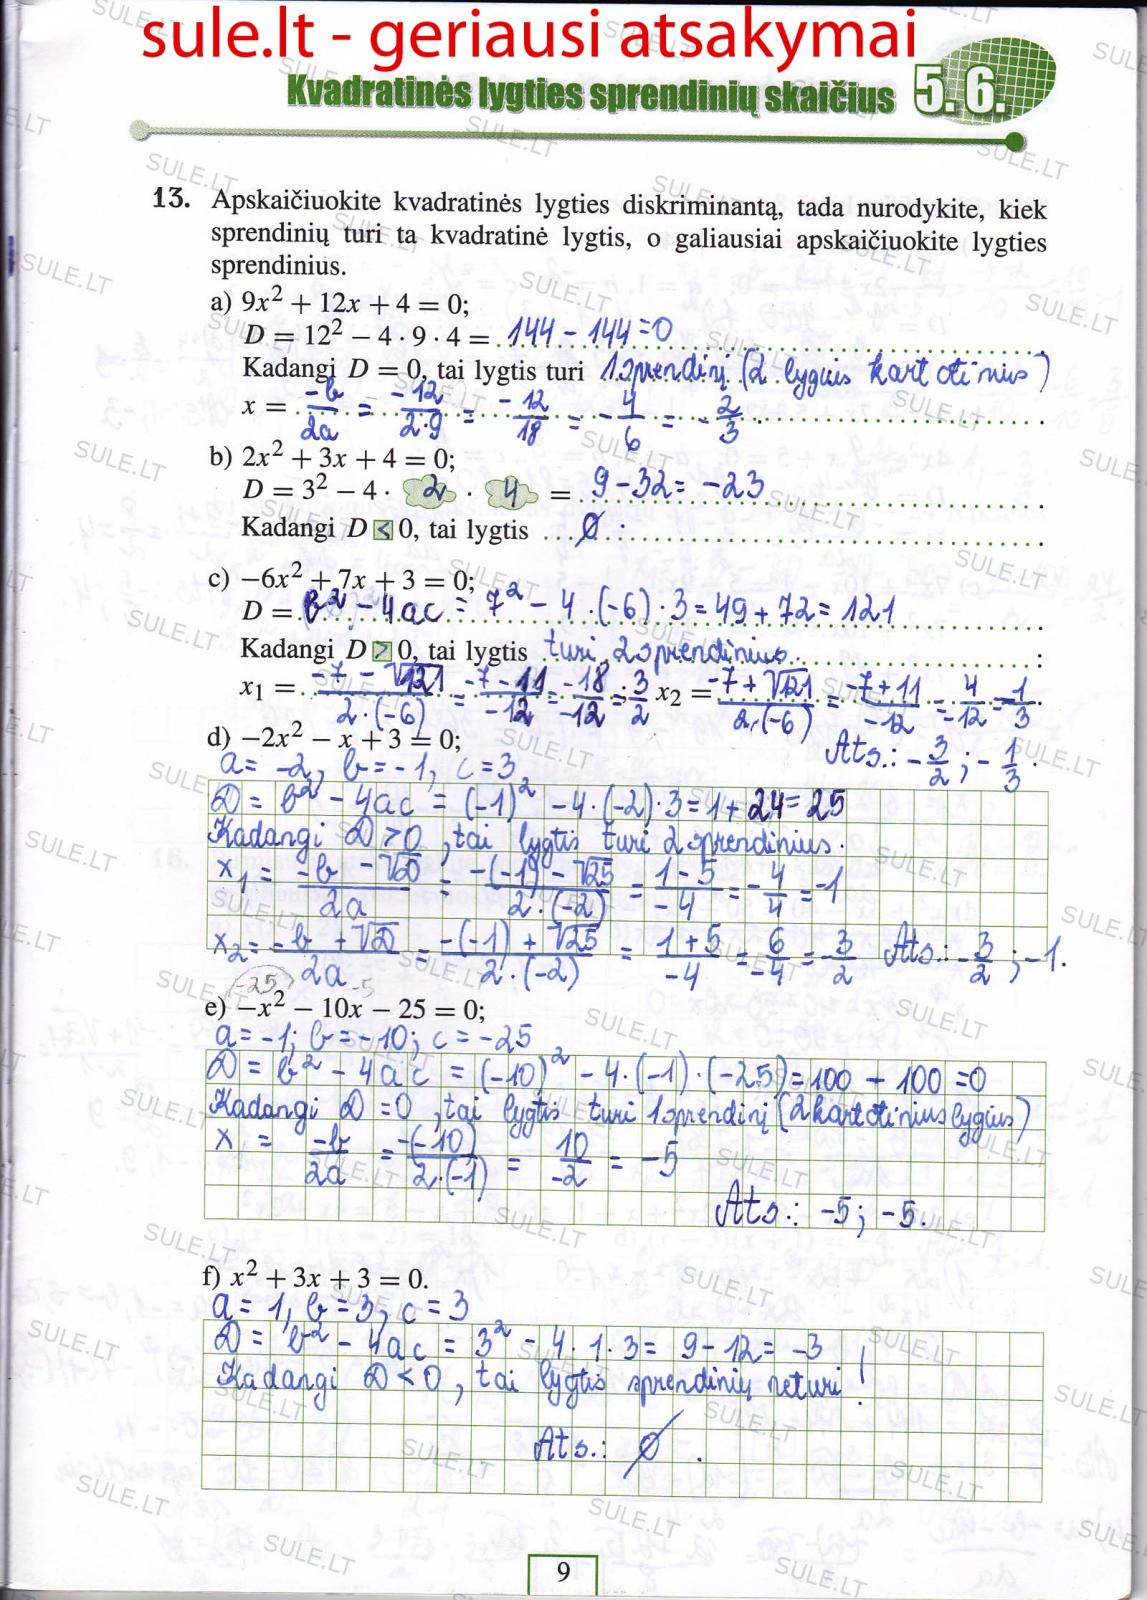 sule.lt - geriausi atsakymai
Kvadratinės lygties sprendinių skaičius 5.6.
13. Apskaičiuokite kvadratinės lygties diskriminantą, tada nurodykite, kiek
sprendinių turi ta kvadratinė lygtis, o galiausiai apskaičiuokite lygties
sprendinius.
a) 9x² + 12x + 4 = 0;
D = 12² − 4 · 9 · 4 = 144 − 144 = 0
Kadangi D = 0, tai lygtis turi 1 sprendinį (2 lygius kartotinius)
x = −b/2a = −12/2·9 = −12/18 = −4/6 = −2/3
b) 2x² + 3x + 4 = 0;
D = 3² − 4 · 2 · 4 = 9 − 32 = −23
Kadangi D < 0, tai lygtis ∅.
c) −6x² + 7x + 3 = 0;
D = b² − 4ac = 7² − 4 · (−6) · 3 = 49 + 72 = 121
Kadangi D > 0, tai lygtis turi 2 sprendinius.
x₁ = −7 − √121/2·(−6) = −7−11/−12 = −18/−12 = 3/2 x₂ = −7 + √121/2·(−6) = −7+11/−12 = 4/−12 = −1/3
d) −2x² − x + 3 = 0; Ats.: −3/2 ; −1/3.
a = −2, b = −1, c = 3
D = b² − 4ac = (−1)² − 4·(−2)·3 = 1 + 24 = 25
Kadangi D > 0, tai lygtis turi 2 sprendinius.
x₁ = −b − √D/2a = −(−1) − √25/2·(−2) = 1−5/−4 = −4/4 = −1
x₂ = −b + √D/2a = −(−1) + √25/2·(−2) = 1+5/−4 = 6/−4 = −3/2 Ats.: −3/2 ; −1.
(−25) −5
e) −x² − 10x − 25 = 0;
a = −1; b = −10; c = −25
D = b² − 4ac = (−10)² − 4·(−1)·(−25) = 100 − 100 = 0
Kadangi D = 0, tai lygtis turi 1 sprendinį (2 kartotinius lygius)
x₁ = −b/2a = −(−10)/2·(−1) = 10/−2 = −5
Ats.: −5; −5.
f) x² + 3x + 3 = 0.
a = 1, b = 3, c = 3
D = b² − 4ac = 3² − 4 · 1 · 3 = 9 − 12 = −3
Kadangi D < 0, tai lygtis sprendinių neturi!
Ats.: ∅.
9